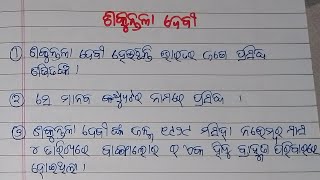 ଶକୁନ୍ତଳା ଦେବୀ
① ଶକୁନ୍ତଳା ଦେବୀ ହେଉଛନ୍ତି ଭାରତର ଜଣେ ପ୍ରସିଦ୍ଧ
ଗଣିତଜ୍ଞ ।
② ସେ ମାନବ କମ୍ପ୍ୟୁଟର ନାମରେ ପ୍ରସିଦ୍ଧ ।
③ ଶକୁନ୍ତଳା ଦେବୀଙ୍କ ଜନ୍ମ ୧୯୨୯ ମସିହା ନଭେମ୍ବର ମାସ
୪ ତାରିଖରେ ବାଙ୍ଗାଲୋର ର ଏକ ହିନ୍ଦୁ ବ୍ରାହ୍ମଣ ପରିବାରରେ
ହୋଇଥିଲା ।